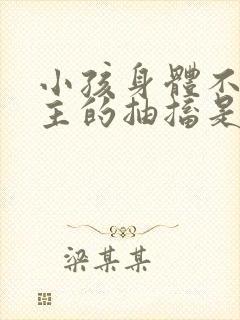 小孩身體不
主的抽搐是
梁某某